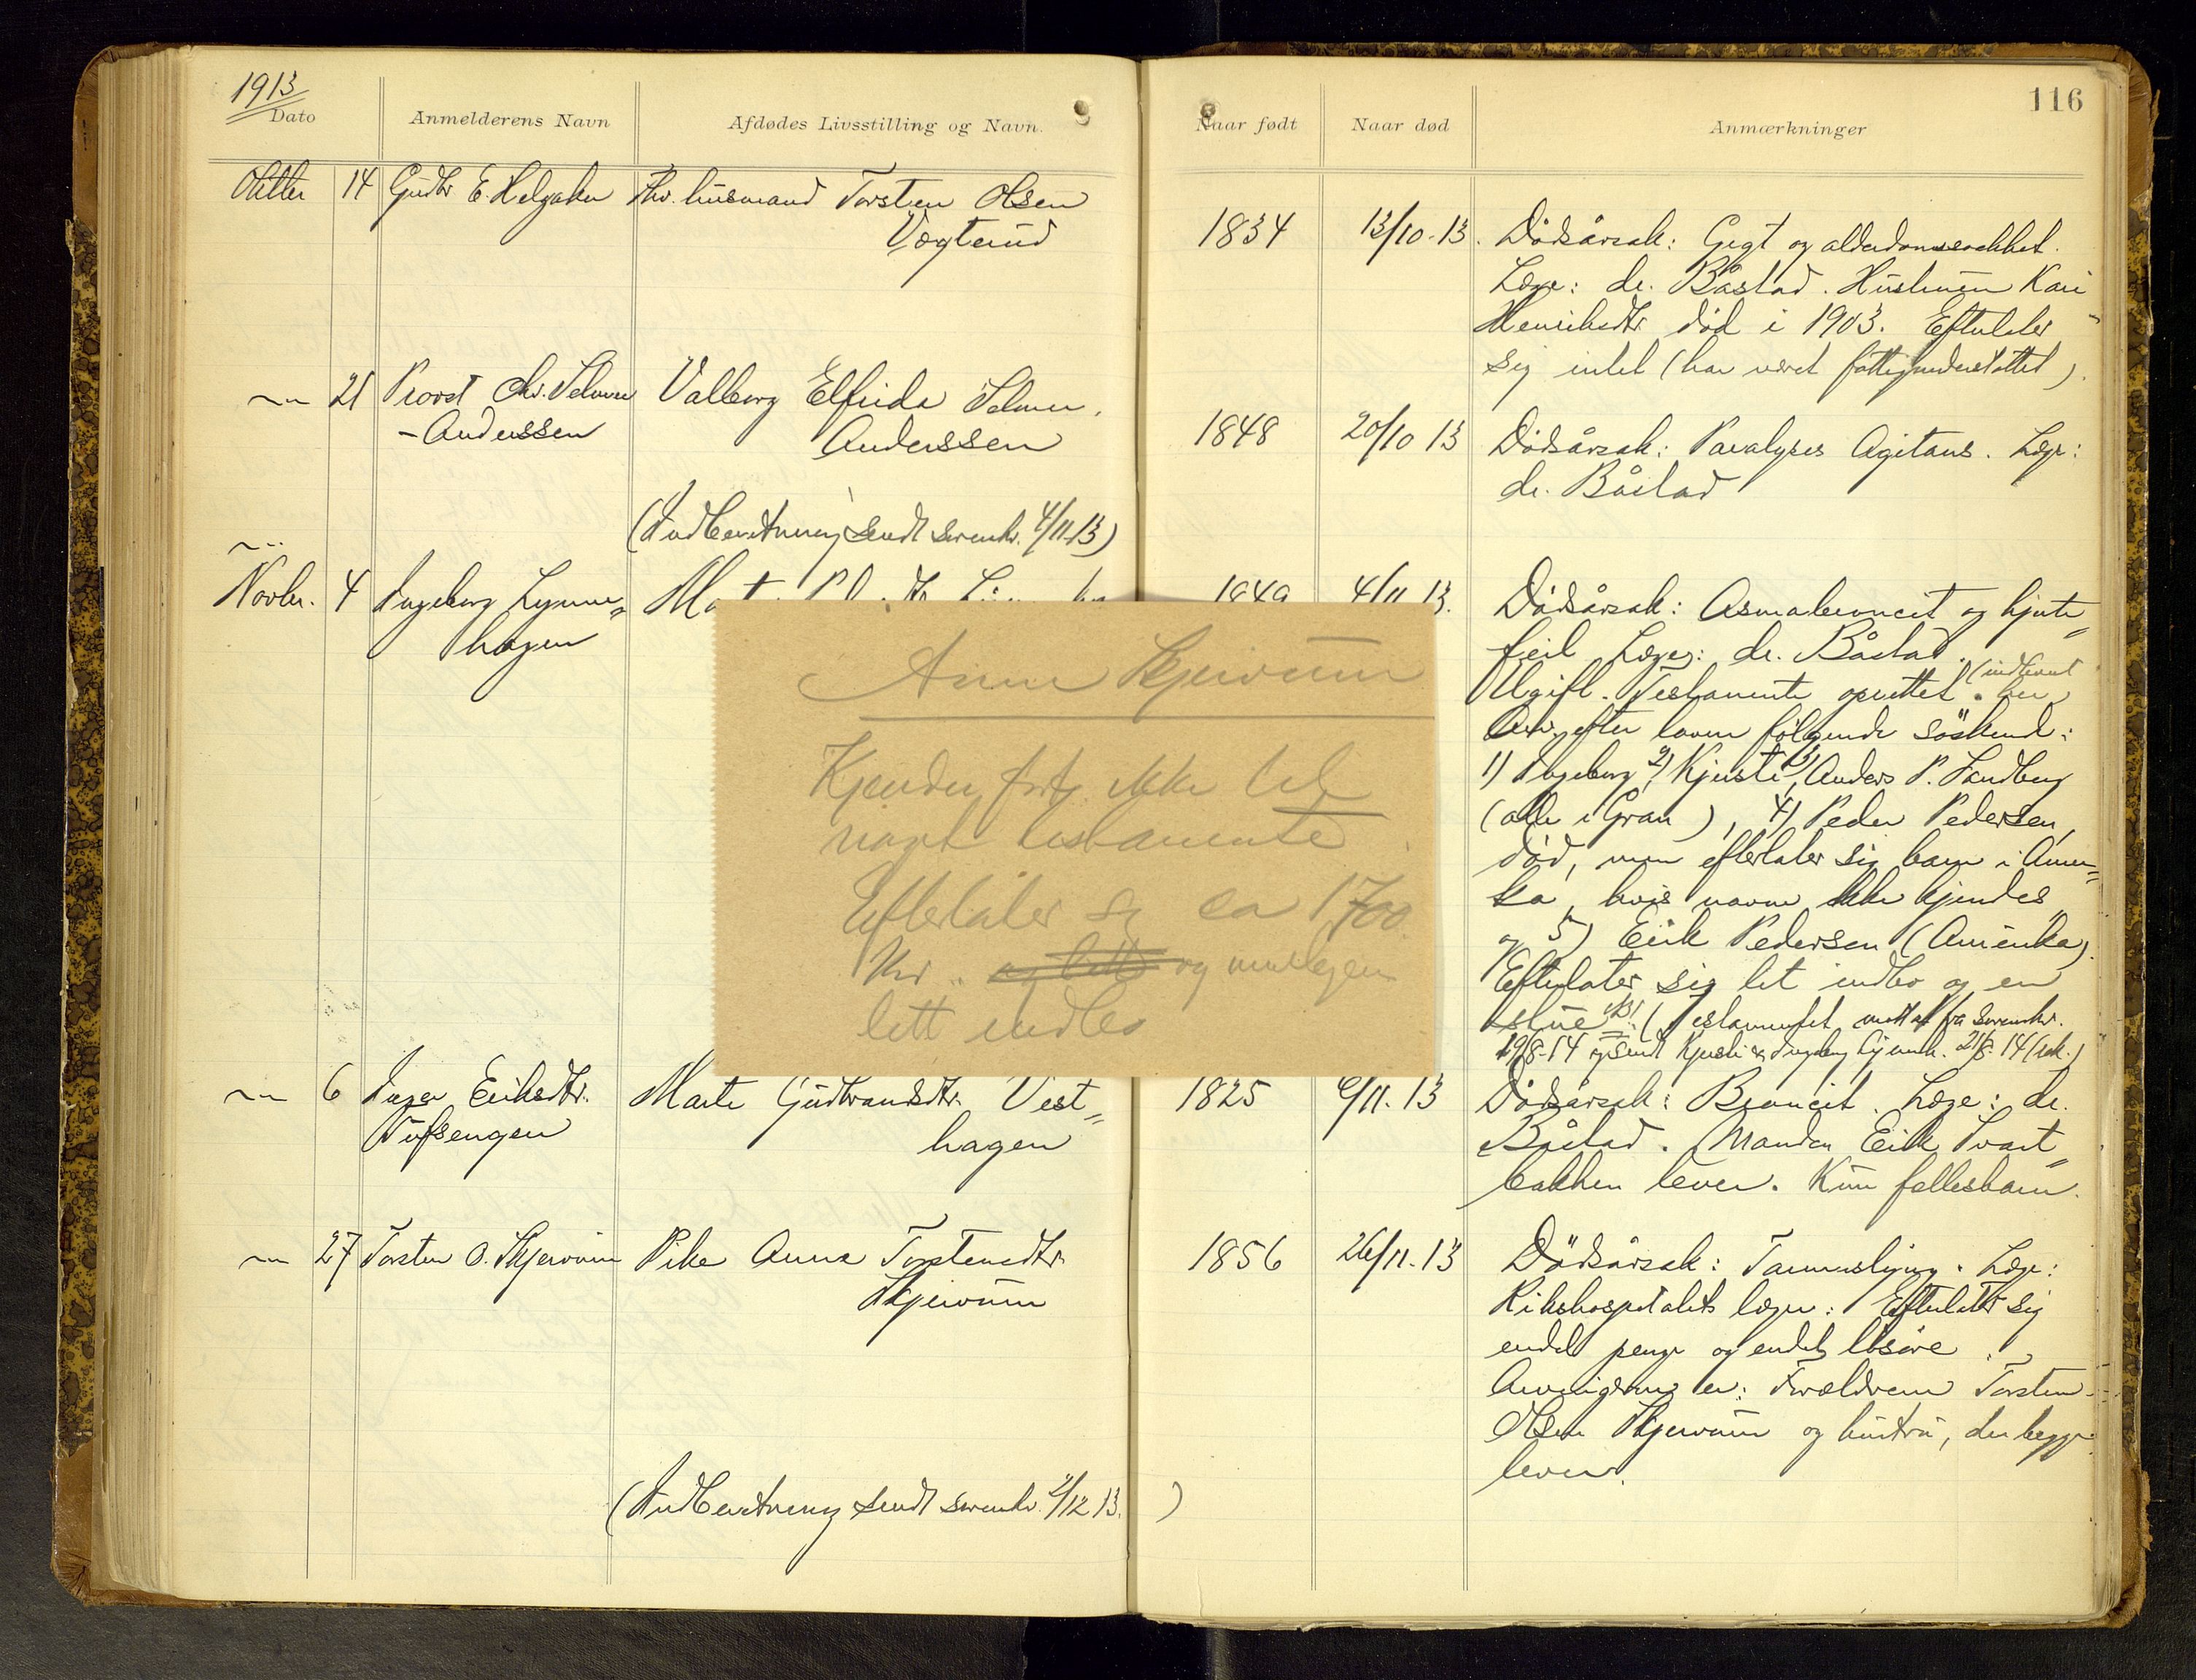 1913
116
Dato
Anmelderens Navn
Afdødes Livsstilling og Navn.
Naar født
Naar død
Anmærkninger
Oktbr 14 Gudbr E. Helgaker
Fhv. husmand Torsten Olsen
Vøgterud
1834 13/10-13.
Dödsårsak: Gigt og alderdomssvakhet.
Læge: dr. Båstad. Hustruen Kari
Henriksdtr. död i 1903. Efterlater
sig intet (har været fattigunderstöttet).
21 Provst Chr. Selmer
-Anderssen
Valborg Elfrida Selmer.
Anderssen
1848 20/10 13
Dödsårsak: Paralysis Agitans. Læge:
dr. Båstad
(Indberetning sendt sorenskr. 4/11-13)
Novbr. 4 Ingeborg Lynne=
hagen
4/11 13.
Dödsårsak: Asmabroncit og hjerte=
feil Læge: dr. Båstad.
Ugift. Testamente oprettet. (indlevert
her)
Arv. efter loven fölgende söskend:
1) Ingeborg, 2) Kjersti, 3) Anders P. Sandberg
(alle i Gran), 4) Peder Pedersen,
död, men efterlater sig barn i Ameri=
ka, hvis navne ikke kjendes
og 5) Erik Pedersen (Amerika).
Efterlater sig lit indbo og en
stue. (Testamentet mottat fra sorenskr.
19/8-14 og sendt Kjersti og Ingeborg Lynneh. 21/8-14 (rek.)
Anne Skjervum
Kjender forts ikke til
noget testamente.
Efterlater sig ca 1700
Kr. og litt og muligens
litt indbo
6 Inger Eriksdtr.
Tufsengen
Marte Gudbrandsdtr. Vest=
hagen
1825 6/11. 13
Dödsårsak: Broncit. Læge: dr.
Båstad. Manden Erik Svart=
bakken lever. Kun fellesbarn.
27 Torsten O. Skjervum
Pike Anna Torstensdtr.
Skjervum
1856 26/11.13
Dödsårsak: Tarmslyng. Læge:
Rikshospitalets læger: Efterlater sig
endel penge og endel lösöre.
Arvingerne er: Forældrene Torsten
Olsen Skjervum og hustru, der begge
lever.
(Indberetning sendt sorenskr. 2/12 13.)